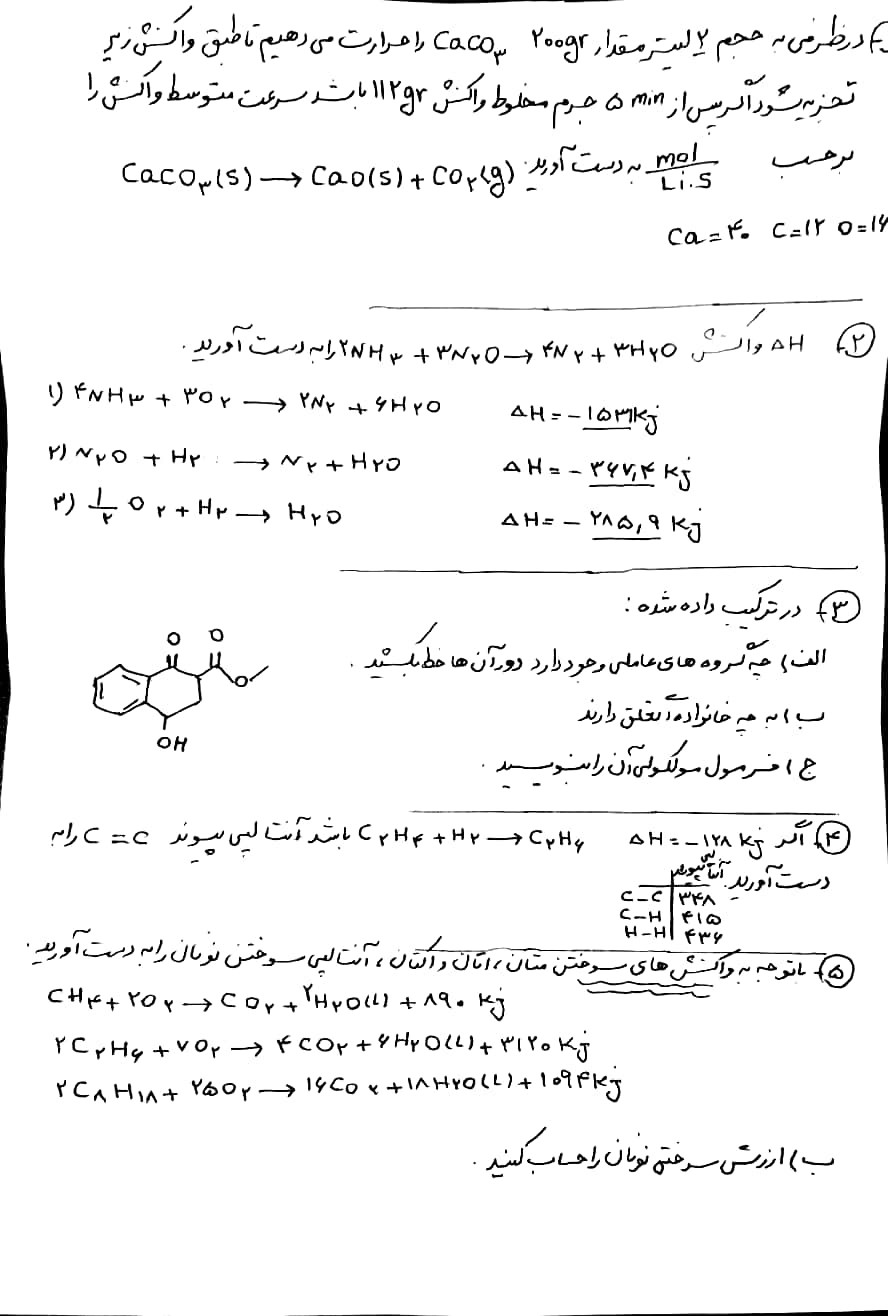 در ظرفی به حجم ۲ لیتر مقدار ۲۰۰gr CaCO۳ را حرارت می دهیم تا طبق واکنش زیر
تجزیه شود اگر پس از ۵ min جرم مخلوط واکنش ۱۱۲gr باشد سرعت متوسط واکنش را
برحسب mol/Li.S به دست آورید. CaCO۳(s) → CaO(s) + CO۲(g)
Ca=۴۰ C=۱۲ O=۱۶
۲- ΔH واکنش ۲NH۳ + ۳N۲O → ۴N۲ + ۳H۲O را به دست آورید.
۱) ۴NH۳ + ۳O۲ → ۲N۲ + ۶H۲O ΔH = -۱۵۳۱kj
۲) N۲O + H۲ → N۲ + H۲O ΔH = -۳۶۷,۴ kj
۳) ۱/۲ O۲ + H۲ → H۲O ΔH = -۲۸۵,۹ kj
۳- در ترکیب داده شده :
الف) چه گروه های عاملی وجود دارد دور آن ها خط بکشید.
O O
O
OH
ب) به چه خانواده تعلق دارند
ج) فرمول مولکولی آن را بنویسید.
۴- اگر ΔH = -۱۲۸ kj C۲H۴ + H۲ → C۲H۶ باشد آنتالپی پیوند C=C را به
دست آورید. آنتالپی پیوند
C-C ۳۴۸
C-H ۴۱۵
H-H ۴۳۶
۵- باتوجه به واکنش های سوختن متان، اتان و اکتان، آنتالپی سوختن نونان را به دست آورید.
CH۴ + ۲O۲ → CO۲ + ۲H۲O(L) + ۸۹۰ kj
۲C۲H۶ + ۷O۲ → ۴CO۲ + ۶H۲O(L) + ۳۱۲۰ kj
۲C۸H۱۸ + ۲۵O۲ → ۱۶CO۲ + ۱۸H۲O(L) + ۱۰۹۴kj
ب) ارزش سوختی نونان را حساب کنید.